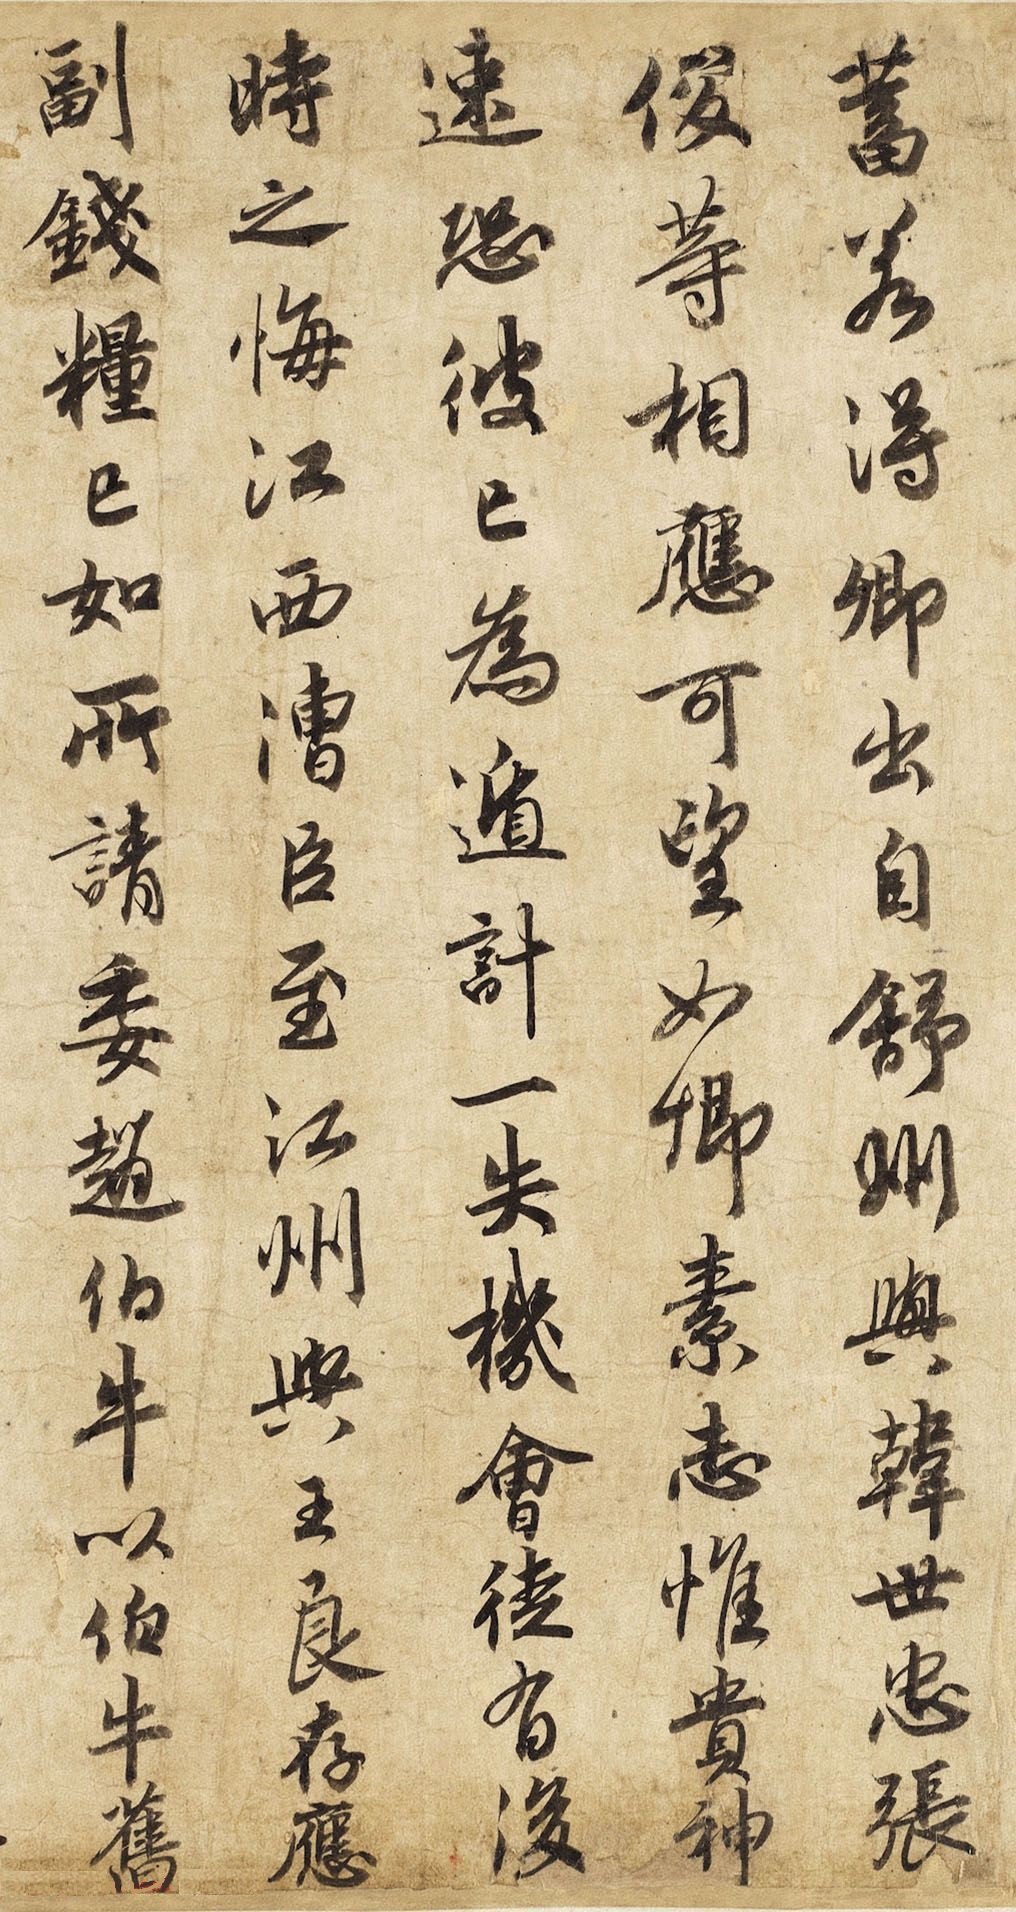 蓄若得卿出自舒州與韓世忠張
俊等相應可望如卿素志惟貴神
速恐彼已為遁計一失機會徒有後
時之悔江西漕臣至江州與王良存應
副錢糧已如所請委趙伯牛以伯牛舊